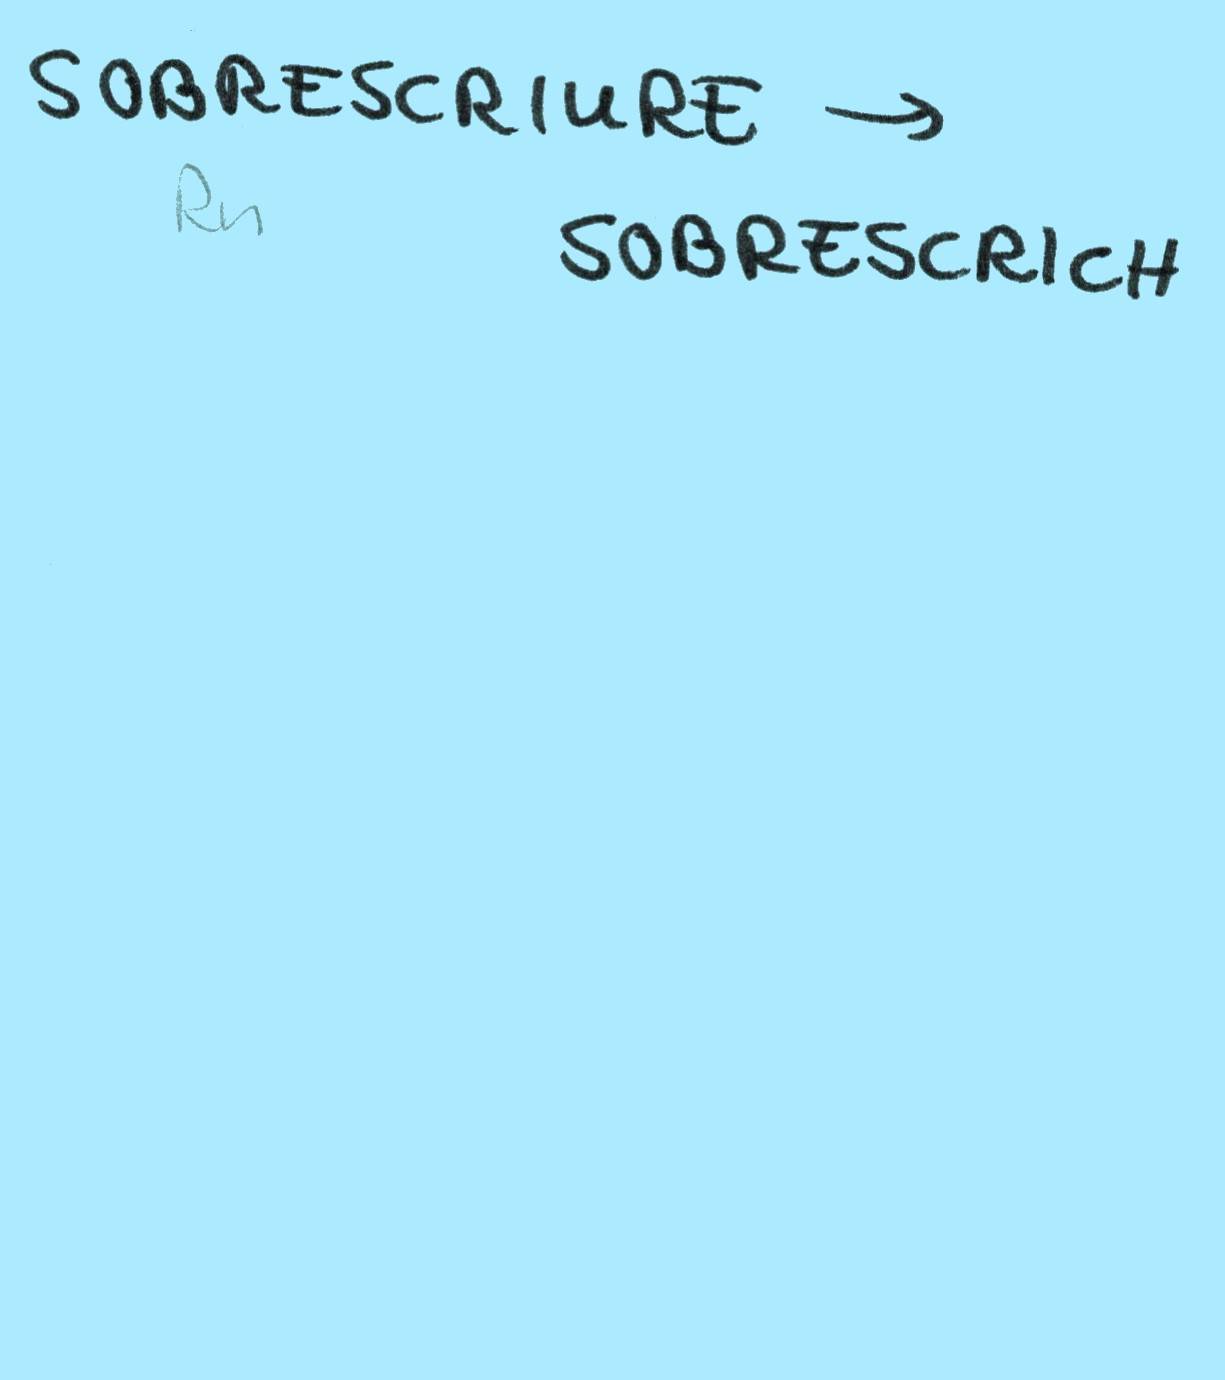 SOBRESCRIURE →
Rn
SOBRESCRICH